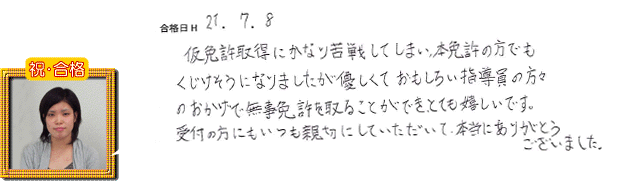 合格日H 21. 7. 8
仮免許取得にかなり苦戦してしまい、本免許の方でも
くじけそうになりましたが優しくて おもしろい指導員の方々
のおかげで無事免許を取ることができとても嬉しいです。
受付の方にもいつも親切にしていただいて、本当にありがとう
ございました。
祝・合格